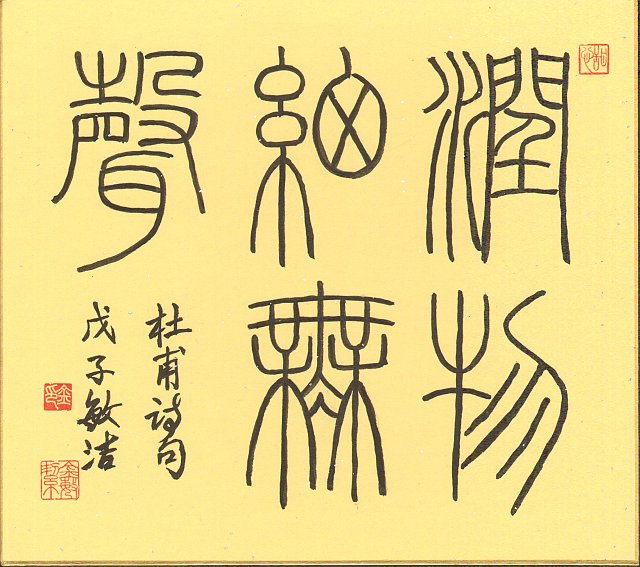 潤物
細無
聲
杜甫诗句
戊子敏洁